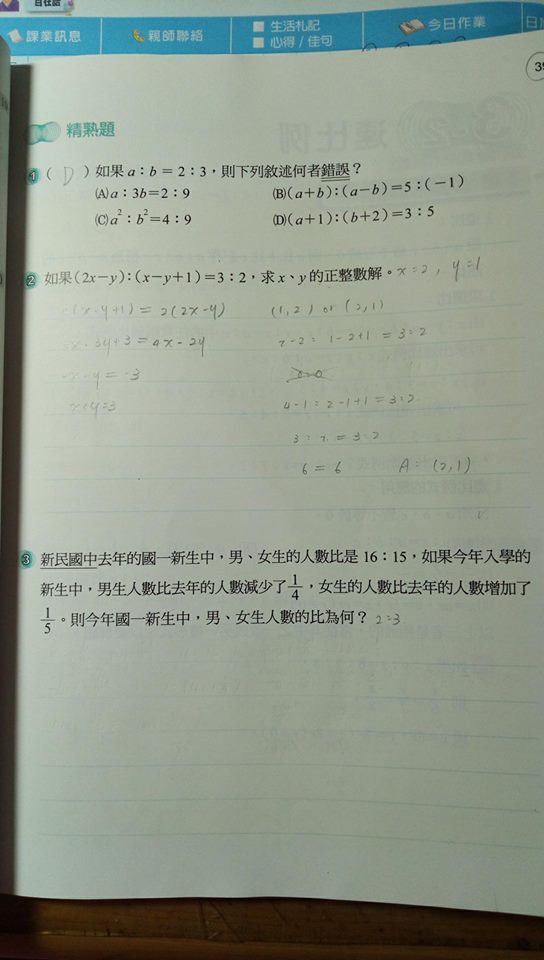 自在話
課業訊息
親師聯絡
生活札記
心得/佳句
今日作業
39
精熟題
1 ( D ) 如果 a:b = 2:3,則下列敘述何者錯誤?
(A) a:3b=2:9 (B) (a+b):(a-b)=5:(-1)
(C) a²:b²=4:9 (D) (a+1):(b+2)=3:5
2 如果(2x-y):(x-y+1)=3:2,求x、y的正整數解。x=2, y=1
(x-y+1) = 2(2x-y) (1,2) or (2,1)
3y+3 = 4x-2y 2-2: 1-2+1 = 3:2
-y = -3
x+y=3 4-1: 2-1+1 = 3:2
3: = 3:2
6 = 6 A: (2,1)
3 新民國中去年的國一新生中,男、女生的人數比是16:15,如果今年入學的
新生中,男生人數比去年的人數減少了1/4,女生的人數比去年的人數增加了
1/5。則今年國一新生中,男、女生人數的比為何? 2:3